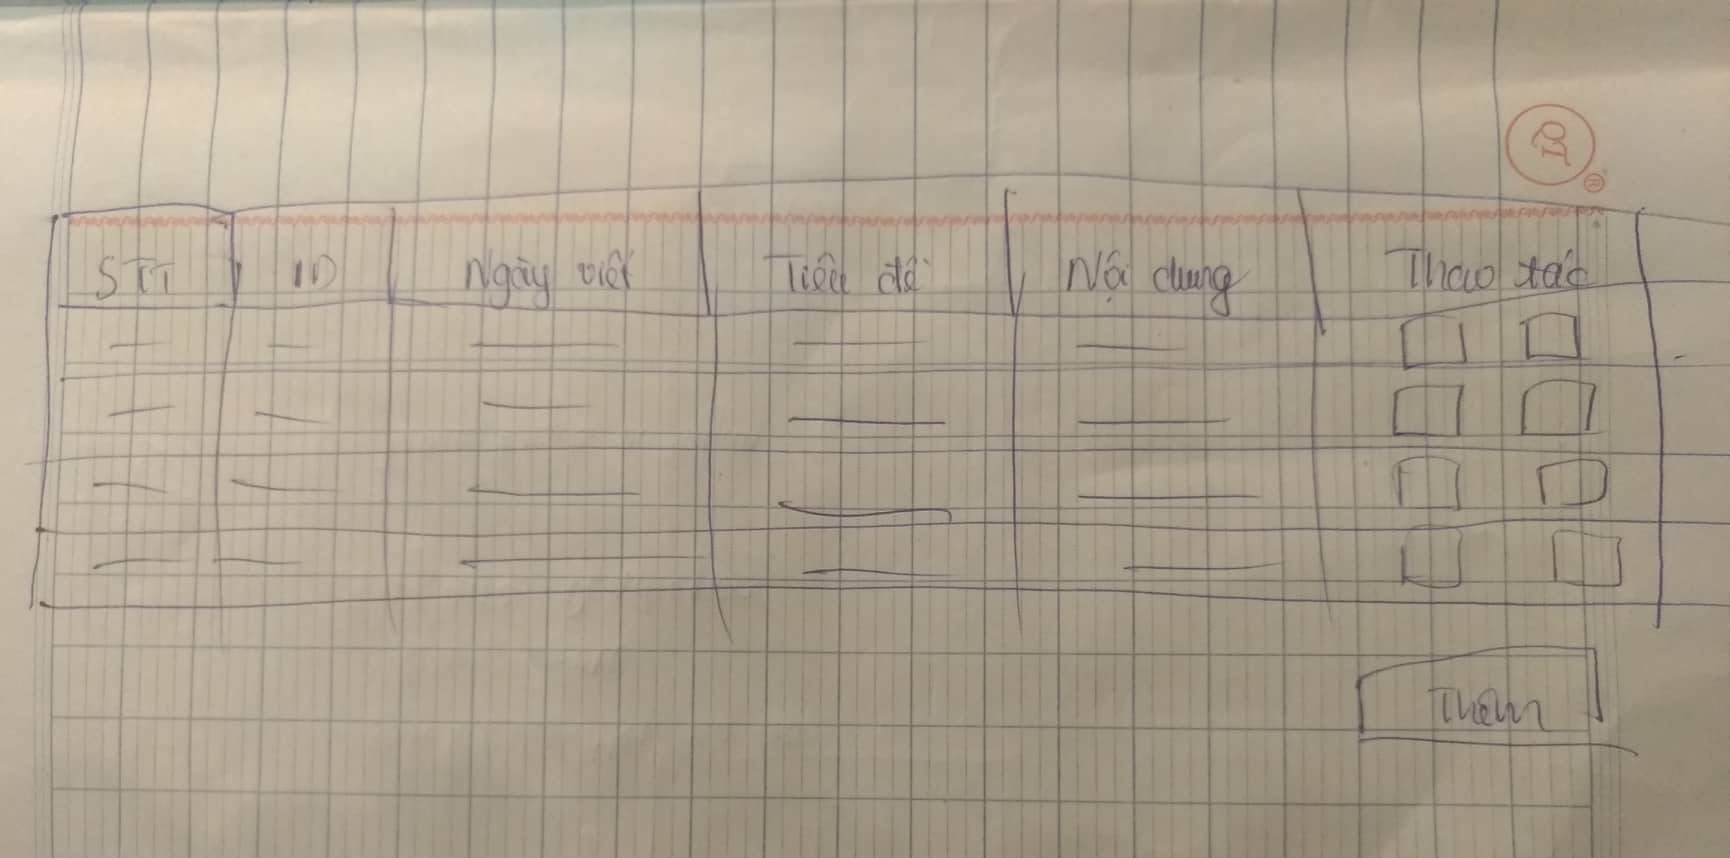 STT ID Ngày viết Tiêu đề Nội dung Thao tác
Thêm